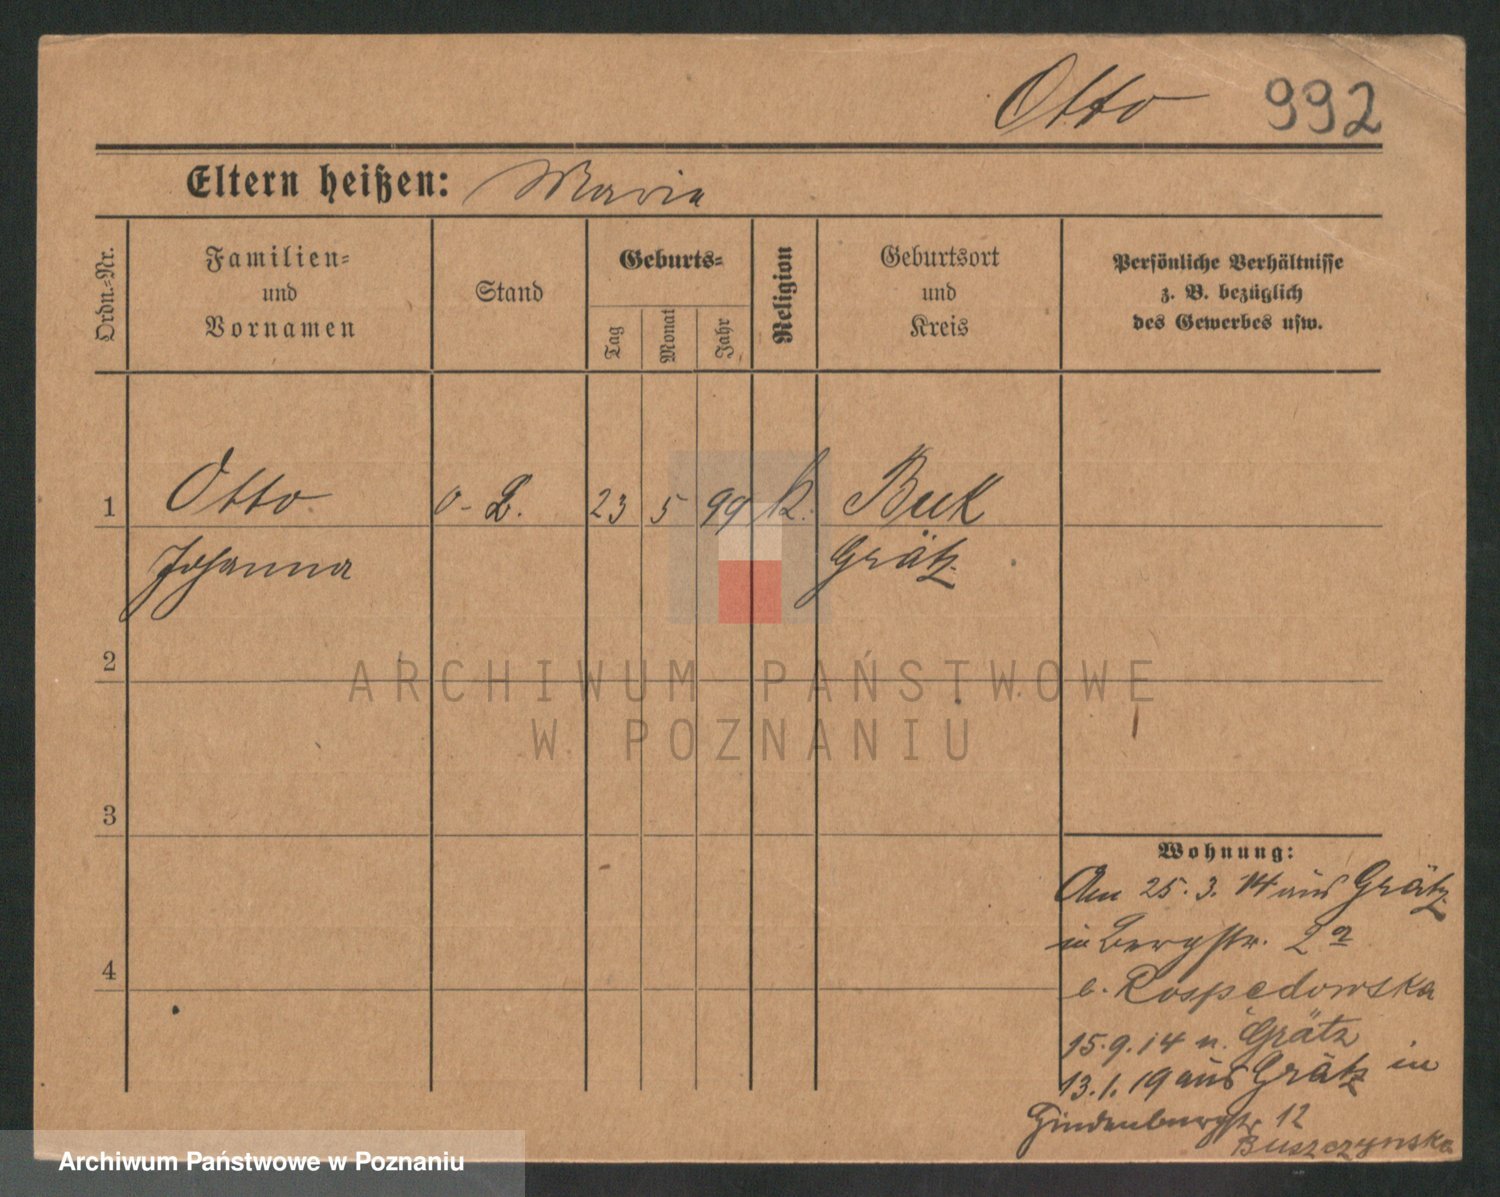 Otto 992
Eltern heißen: Maria
Ordn.=Nr.
Familien=
und
Vornamen
Stand
Geburts=
Tag
Monat
Jahr
Religion
Geburtsort
und
Kreis
Persönliche Verhältnisse
z. B. bezüglich
des Gewerbes usw.
1 Otto 23 5 99 k. Buk
Johanna Grätz
2
3
4
Wohnung:
Am 25.3.14 aus Grätz
in Bergstr. 2a
b. Rospedowska
15.9.14 n. Grätz
13.1.19 aus Grätz in
Hindenburgstr. 12
Buszczynska
ARCHIWUM PAŃSTWOWE
W POZNANIU
Archiwum Państwowe w Poznaniu